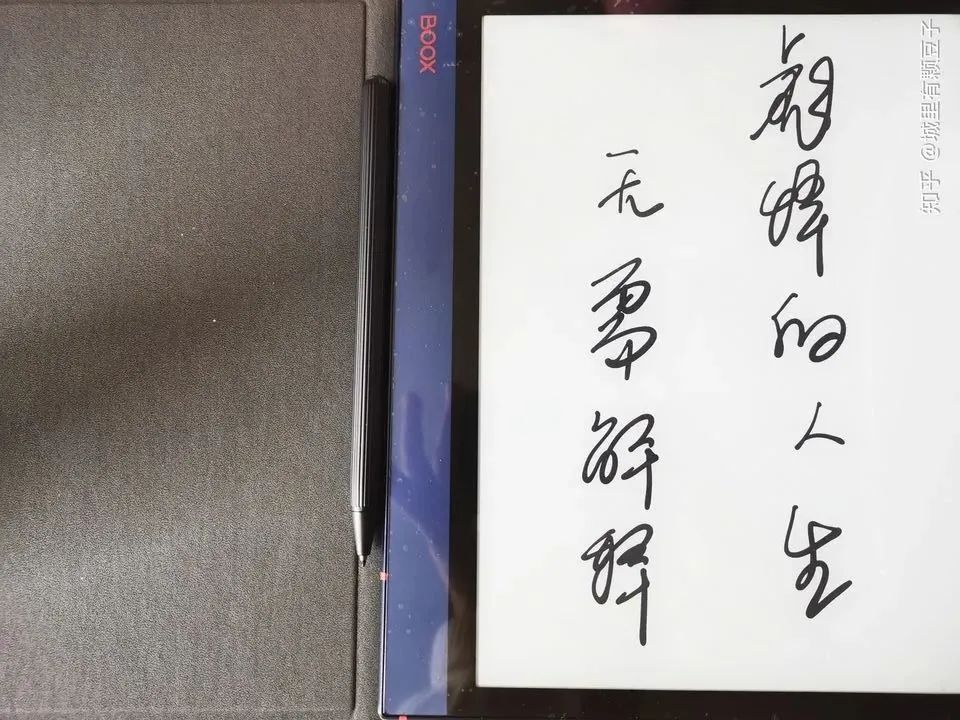 BOOX
彪悍的人生
无需解释
知乎 @城里有颗豆子